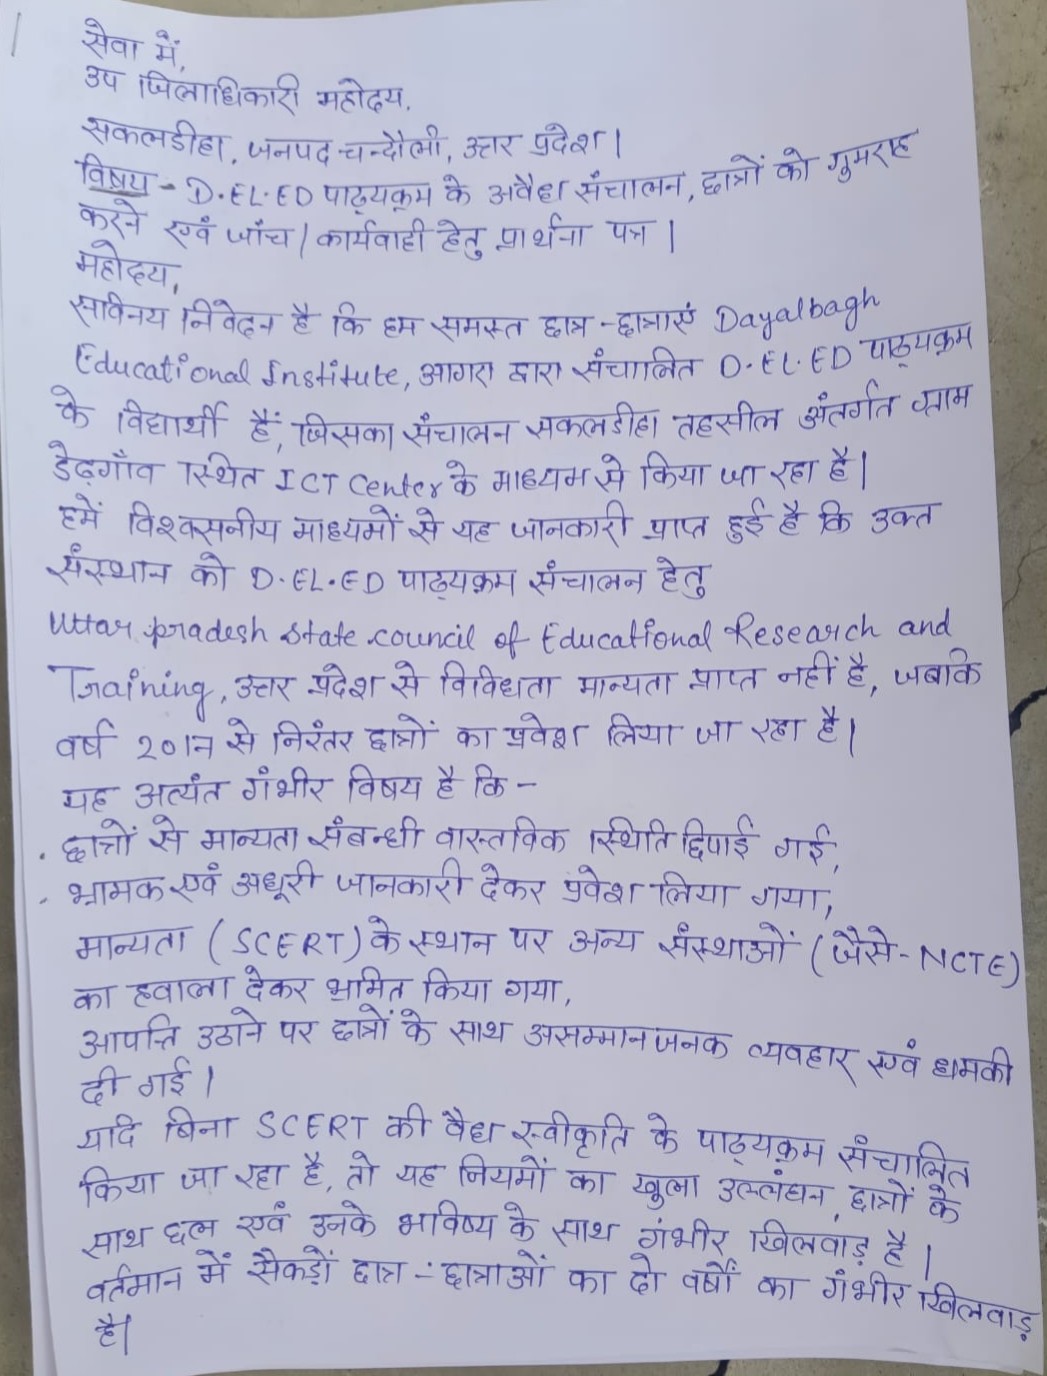 सेवा में,
उप जिलाधिकारी महोदय,
सकलडीहा, जनपद-चन्दौली, उत्तर प्रदेश।
विषय - D.EL.ED पाठ्यक्रम के अवैध संचालन, छात्रों को गुमराह
करने एवं जाँच / कार्यवाही हेतु प्रार्थना पत्र ।
महोदय,
सविनय निवेदन है कि हम समस्त छात्र-छात्राएं Dayalbagh
Educational Institute, आगरा द्वारा संचालित D.EL.ED पाठ्यक्रम
के विद्यार्थी हैं, जिसका संचालन सकलडीहा तहसील अंतर्गत ग्राम
डेढ़गाँव स्थित ICT Center के माध्यम से किया जा रहा है।
हमें विश्वसनीय माध्यमों से यह जानकारी प्राप्त हुई है कि उक्त
संस्थान को D.EL.ED पाठ्यक्रम संचालन हेतु
Uttar pradesh State council of Educational Research and
Training, उत्तर प्रदेश से विविधता मान्यता प्राप्त नहीं है, जबकि
वर्ष २०१७ से निरंतर छात्रों का प्रवेश लिया जा रहा है।
यह अत्यंत गंभीर विषय है कि -
. छात्रों से मान्यता संबन्धी वास्तविक स्थिति छिपाई गई,
. भ्रामक एवं अधूरी जानकारी देकर प्रवेश लिया गया,
मान्यता (SCERT) के स्थान पर अन्य संस्थाओं (जैसे- NCTE)
का हवाला देकर भ्रमित किया गया,
आपत्ति उठाने पर छात्रों के साथ असम्मानजनक व्यवहार एवं धमकी
दी गई ।
यदि बिना SCERT की वैध स्वीकृति के पाठ्यक्रम संचालित
किया जा रहा है, तो यह नियमों का खुला उल्लंघन, छात्रों के
साथ छल एवं उनके भविष्य के साथ गंभीर खिलवाड़ है ।
वर्तमान में सैकड़ों छात्र-छात्राओं का दो वर्षों का गंभीर खिलवाड़
है।